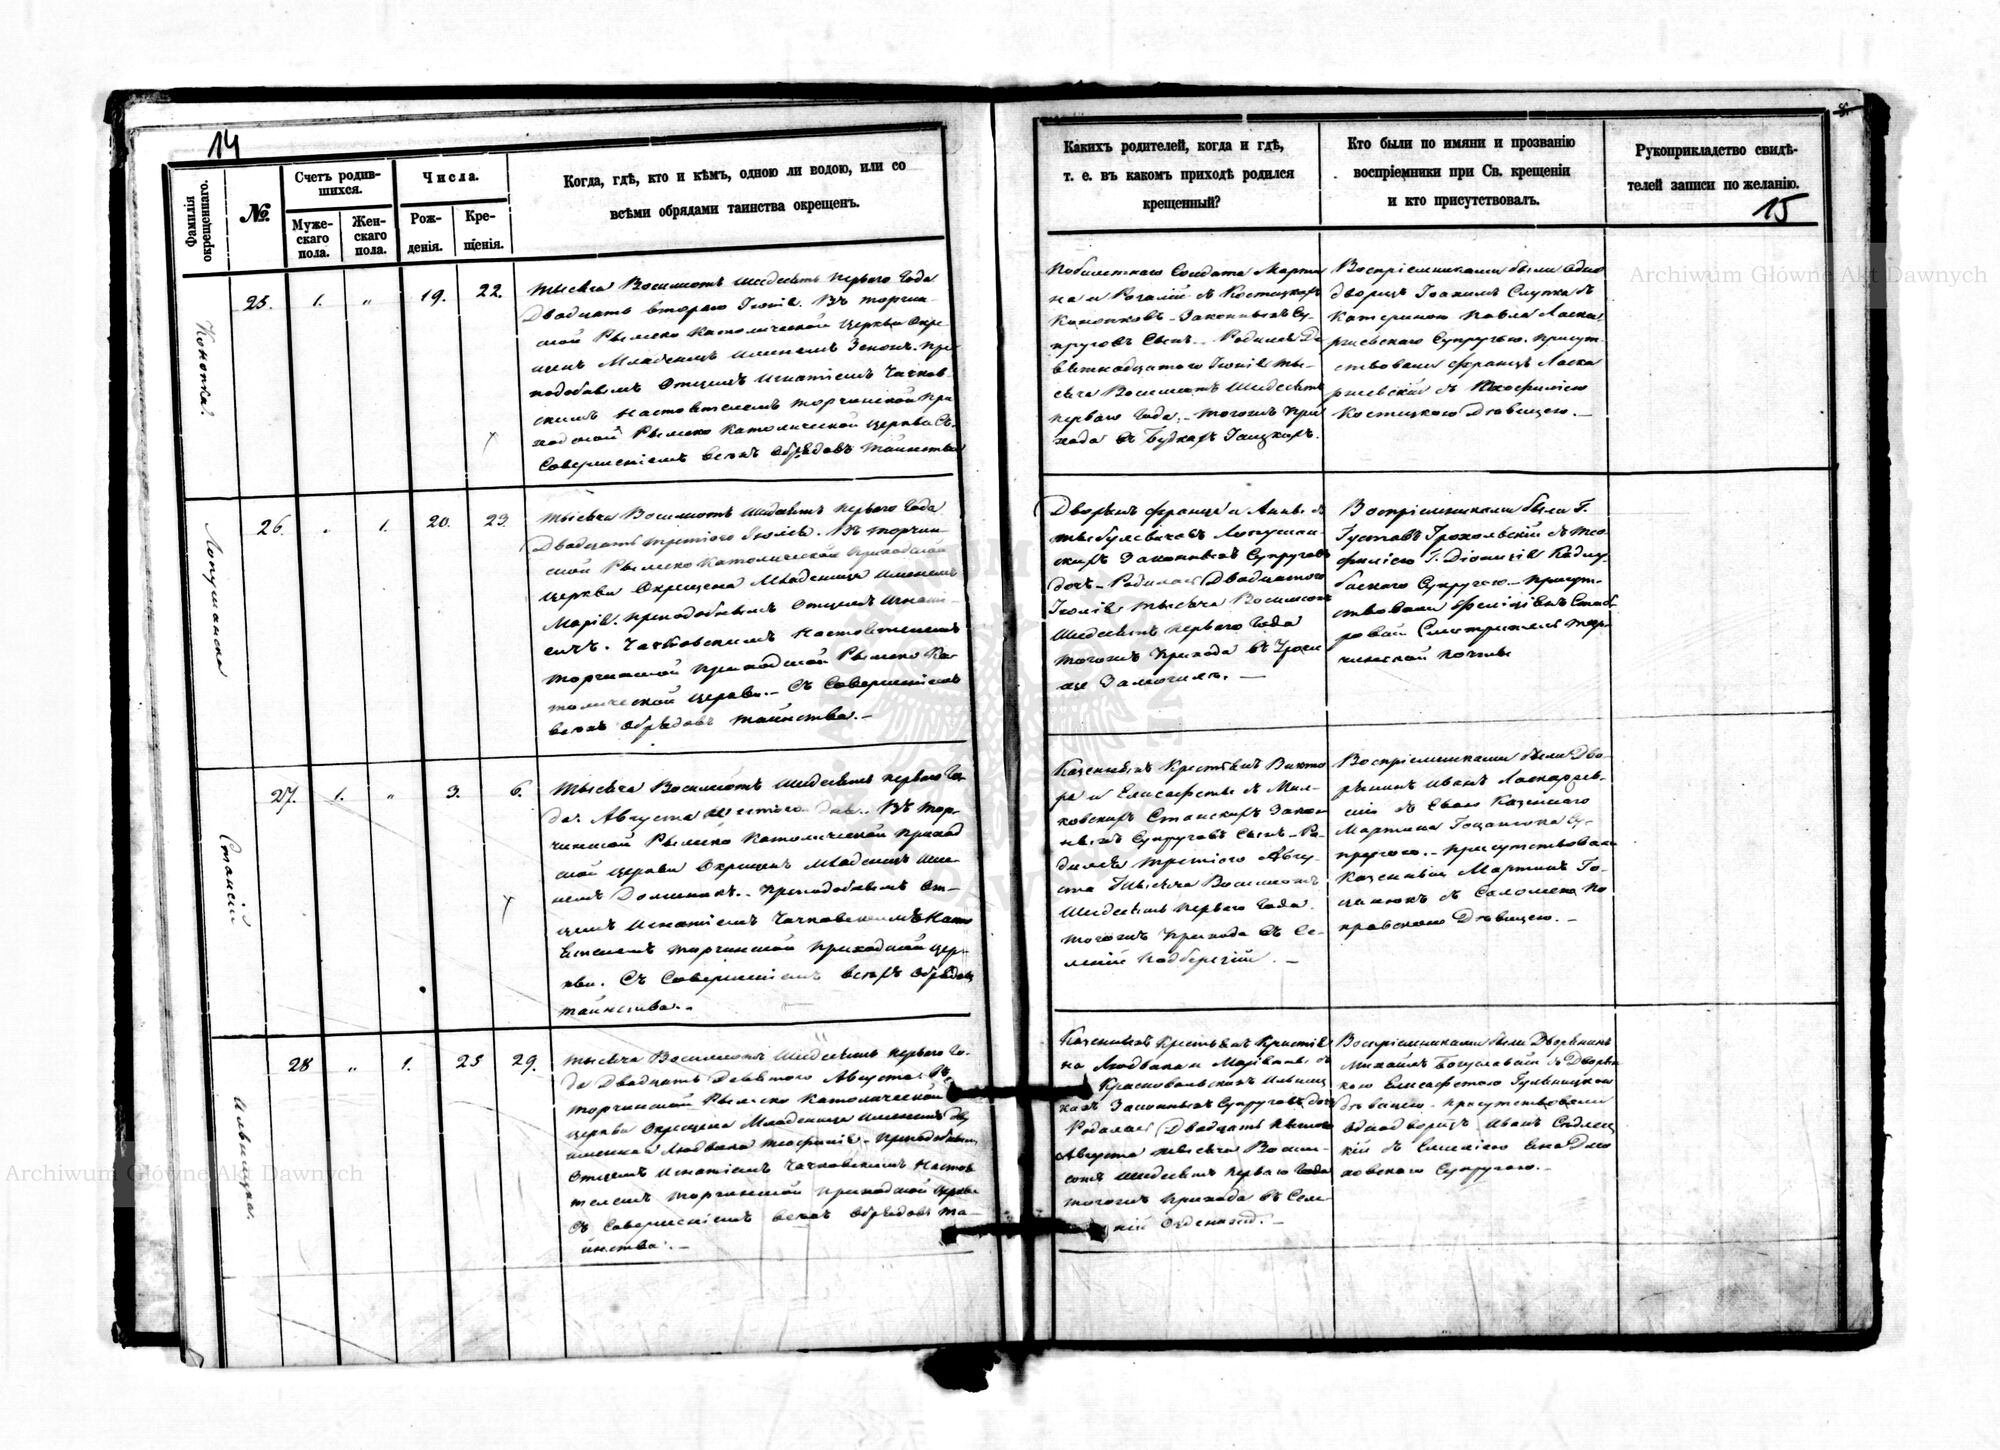 14
Фамилія
окрещеннаго.
№.
Счетъ родив-
шихся.
Муже-
скаго
пола.
Жен-
скаго
пола.
Числа.
Рож-
денія.
Кре-
щенія.
Когда, гдѣ, кто и кѣмъ, одною ли водою, или со
всѣми обрядами таинства окрещенъ.
Конопка.
25.
1.
„
19.
22.
Тысяча Восемсотъ Шесдесятъ перваго Года
Двадцать втораго Іюнія. Въ Торчин-
ской Рымско Католической Церкви Окре-
щенъ Младенецъ именемъ Зенонъ. Пре-
подобнымъ Отцемъ Игнатіемъ Чачков-
скимъ Настоятелемъ Торчинской При-
ходской Рымско Католической Церкви Съ
Совершеніемъ всѣхъ Обрядовъ Таинства
Лопушанска
26.
„
1.
20.
23.
Тысяча Восемсотъ Шесдесятъ перваго Года
Двадцать третіого Іюлія. Въ Торчин-
ской Рымско Католической Приходской
Церкви Окрещена Младеница Именемъ
Марія. Преподобнымъ Отцемъ Игнаті-
емъ. Чачковскимъ Настоятелемъ
Торчинской Приходской Рымско Ка-
толической Церкви. – Съ Совершеніемъ
всѣхъ Обрядовъ Таинства. –
Станскій
27.
1.
„
3.
6.
Тысяча Восемсотъ Шесдесятъ перваго Го-
да. Августа шестого дня. Въ Тор-
чинской Рымско Католической Приход-
ской Церкви Окрещенъ Младенецъ Име-
немъ Доминикъ. – Преподобнымъ От-
цемъ Игнатіемъ Чачковскимъ Насто-
ятелемъ Торчинской Приходской Цер-
кви. Съ Совершеніемъ всѣхъ Обрядовъ
Таинства. –
Ильницка.
28
„
1.
25
29.
Тысяча Восемсотъ Шесдесятъ перваго Го-
да Двадцать Девятого Августа. Въ
Торчинской Рымско Католической
Церкви Окрещена Младеница Именемъ Дву
именная Людвика Теофилія – Преподобнымъ
Отцемъ Игнатіемъ Чачковскимъ Настоя
телемъ Торчинской Приходской Церкви
Съ Совершеніемъ всѣхъ Обрядовъ Та-
инства. –
Какихъ родителей, когда и гдѣ,
т. е. въ какомъ приходѣ родился
крещенный?
Кто были по имяни и прозванію
воспріемники при Св. крещеніи
и кто присутствовалъ.
Рукоприкладство свидѣ-
телей записи по желанію.
15
Марти
на и Розаліи съ Костецкихъ
Конопковъ – Законныхъ Су-
пруговъ Сынъ. – Родился Де
вятнадцатого Іюнія Ты-
сяча Восемсотъ Шесдесятъ
перваго Года. – того жъ При
хода въ
Воспріемниками были Одно
дворецъ Іоакимъ Слупка съ
Катериною Павла Ласка-
ржевскаго Супругою. Присут-
ствовали Францъ Ласка
ржевскій съ Теофилею
Костецкою Дѣвицею. –
Дворянъ Франца и Анны съ
Лопушан-
скихъ Законныхъ Супруговъ
дочь – Родилась Двадцатого
Іюлія тысяча Восемсотъ
Шесдесятъ перваго Года
того жъ Прихода въ
Воспріемниками были Г.
Густавъ Грохольскій съ Тео
филіею Г. Діонизія
Супругою – Присут-
ствовали
Смотритель Тор-
чинской Почты
Казенныхъ Крестянъ Викто
ра и Елисафеты съ Мил-
ковскихъ Станскихъ Закон
ныхъ Супруговъ Сынъ – Ро-
дился третіого Авгу-
ста Тысяча Восемсотъ
Шесдесятъ перваго Года.
того жъ Прихода въ Се-
леніи Подберезіи. –
Воспріемниками были Дво-
рянинъ Иванъ Ласкаржев-
скій съ Евою Казеннаго
Мартина Гоцанюка Су-
пругою. – Присутствовали
Казенный Мартинъ Го-
цанюкъ съ Саломеею По
кровскою Дѣвицею. –
Казенныхъ Крестянъ Кристія
на Людвика и Маріянны съ
Красковальскихъ Ильниц
кихъ Законныхъ Супруговъ дочь
Родилась Двадцать пятого
Августа тысяча Восем-
сотъ Шесдесятъ перваго Года
того жъ Прихода въ Селе-
ніи
Воспріемниками были Дворянинъ
Михаилъ Богуславскій съ Дворян
кою Елисафетою Гульницкою
дѣвицею – присутствовали
Однодворецъ Иванъ Садлец
кій съ
Супругою. –
Archiwum Główne Akt Dawnych
Archiwum Główne Akt Dawnych